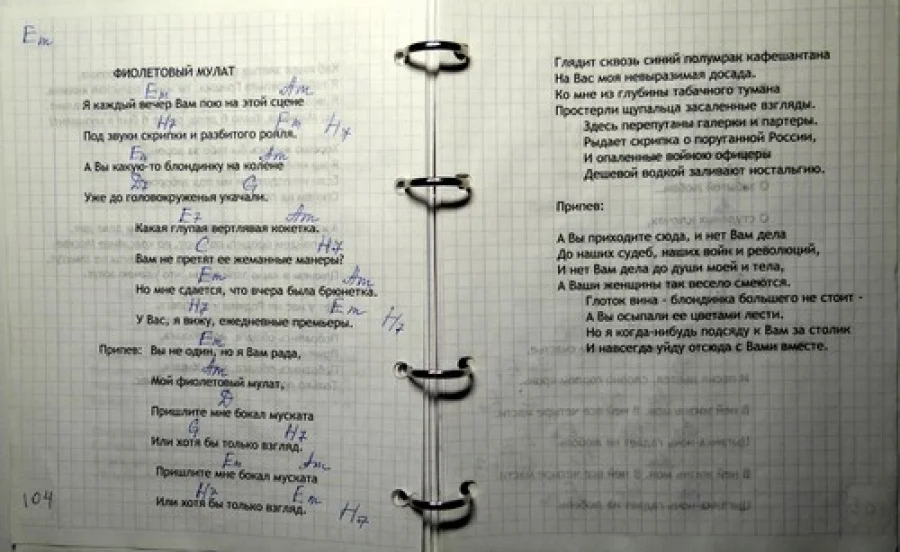 Em
ФИОЛЕТОВЫЙ МУЛАТ
Em Am
Я каждый вечер Вам пою на этой сцене
H7 Em H7
Под звуки скрипки и разбитого рояля.
Em Am
А Вы какую-то блондинку на колене
D G
Уже до головокруженья укачали.
E7 Am
Какая глупая вертлявая кокетка.
C H7
Вам не претят ее жеманные манеры?
Em Am
Но мне сдается, что вчера была брюнетка.
H7 Em H7
У Вас, я вижу, ежедневные премьеры.
Em
Припев: Вы не один, но я Вам рада,
Am
Мой фиолетовый мулат,
D
Пришлите мне бокал муската
G H7
Или хотя бы только взгляд.
Em Am
Пришлите мне бокал муската
H7 Em H7
Или хотя бы только взгляд.
104
Глядит сквозь синий полумрак кафешантана
На Вас моя невыразимая досада.
Ко мне из глубины табачного тумана
Простерли щупальца засаленные взгляды.
Здесь перепутаны галерки и партеры.
Рыдает скрипка о поруганной России,
И опаленные войною офицеры
Дешевой водкой заливают ностальгию.
Припев:
А Вы приходите сюда, и нет Вам дела
До наших судеб, наших войн и революций,
И нет Вам дела до души моей и тела,
А Ваши женщины так весело смеются.
Глоток вина - блондинка большего не стоит -
А Вы осыпали ее цветами лести.
Но я когда-нибудь подсяду к Вам за столик
И навсегда уйду отсюда с Вами вместе.